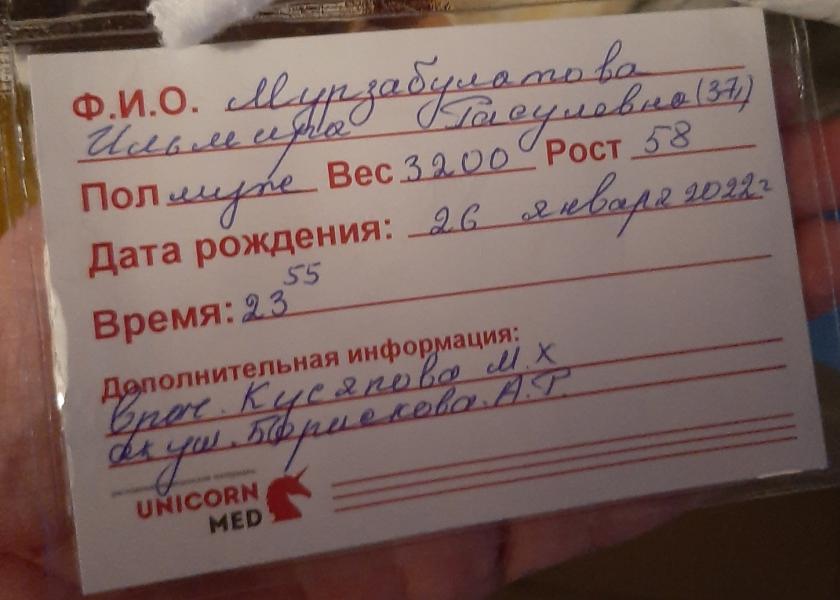 Ф.И.О. Мурзабулатова
Ильмира Расулевна (37л)
Пол муж Вес 3200 Рост 58
Дата рождения: 26 января 2022г
Время: 23 55
Дополнительная информация:
Врач. Кусяпова М.Х
акуш. А.Р.
UNICORN
MED